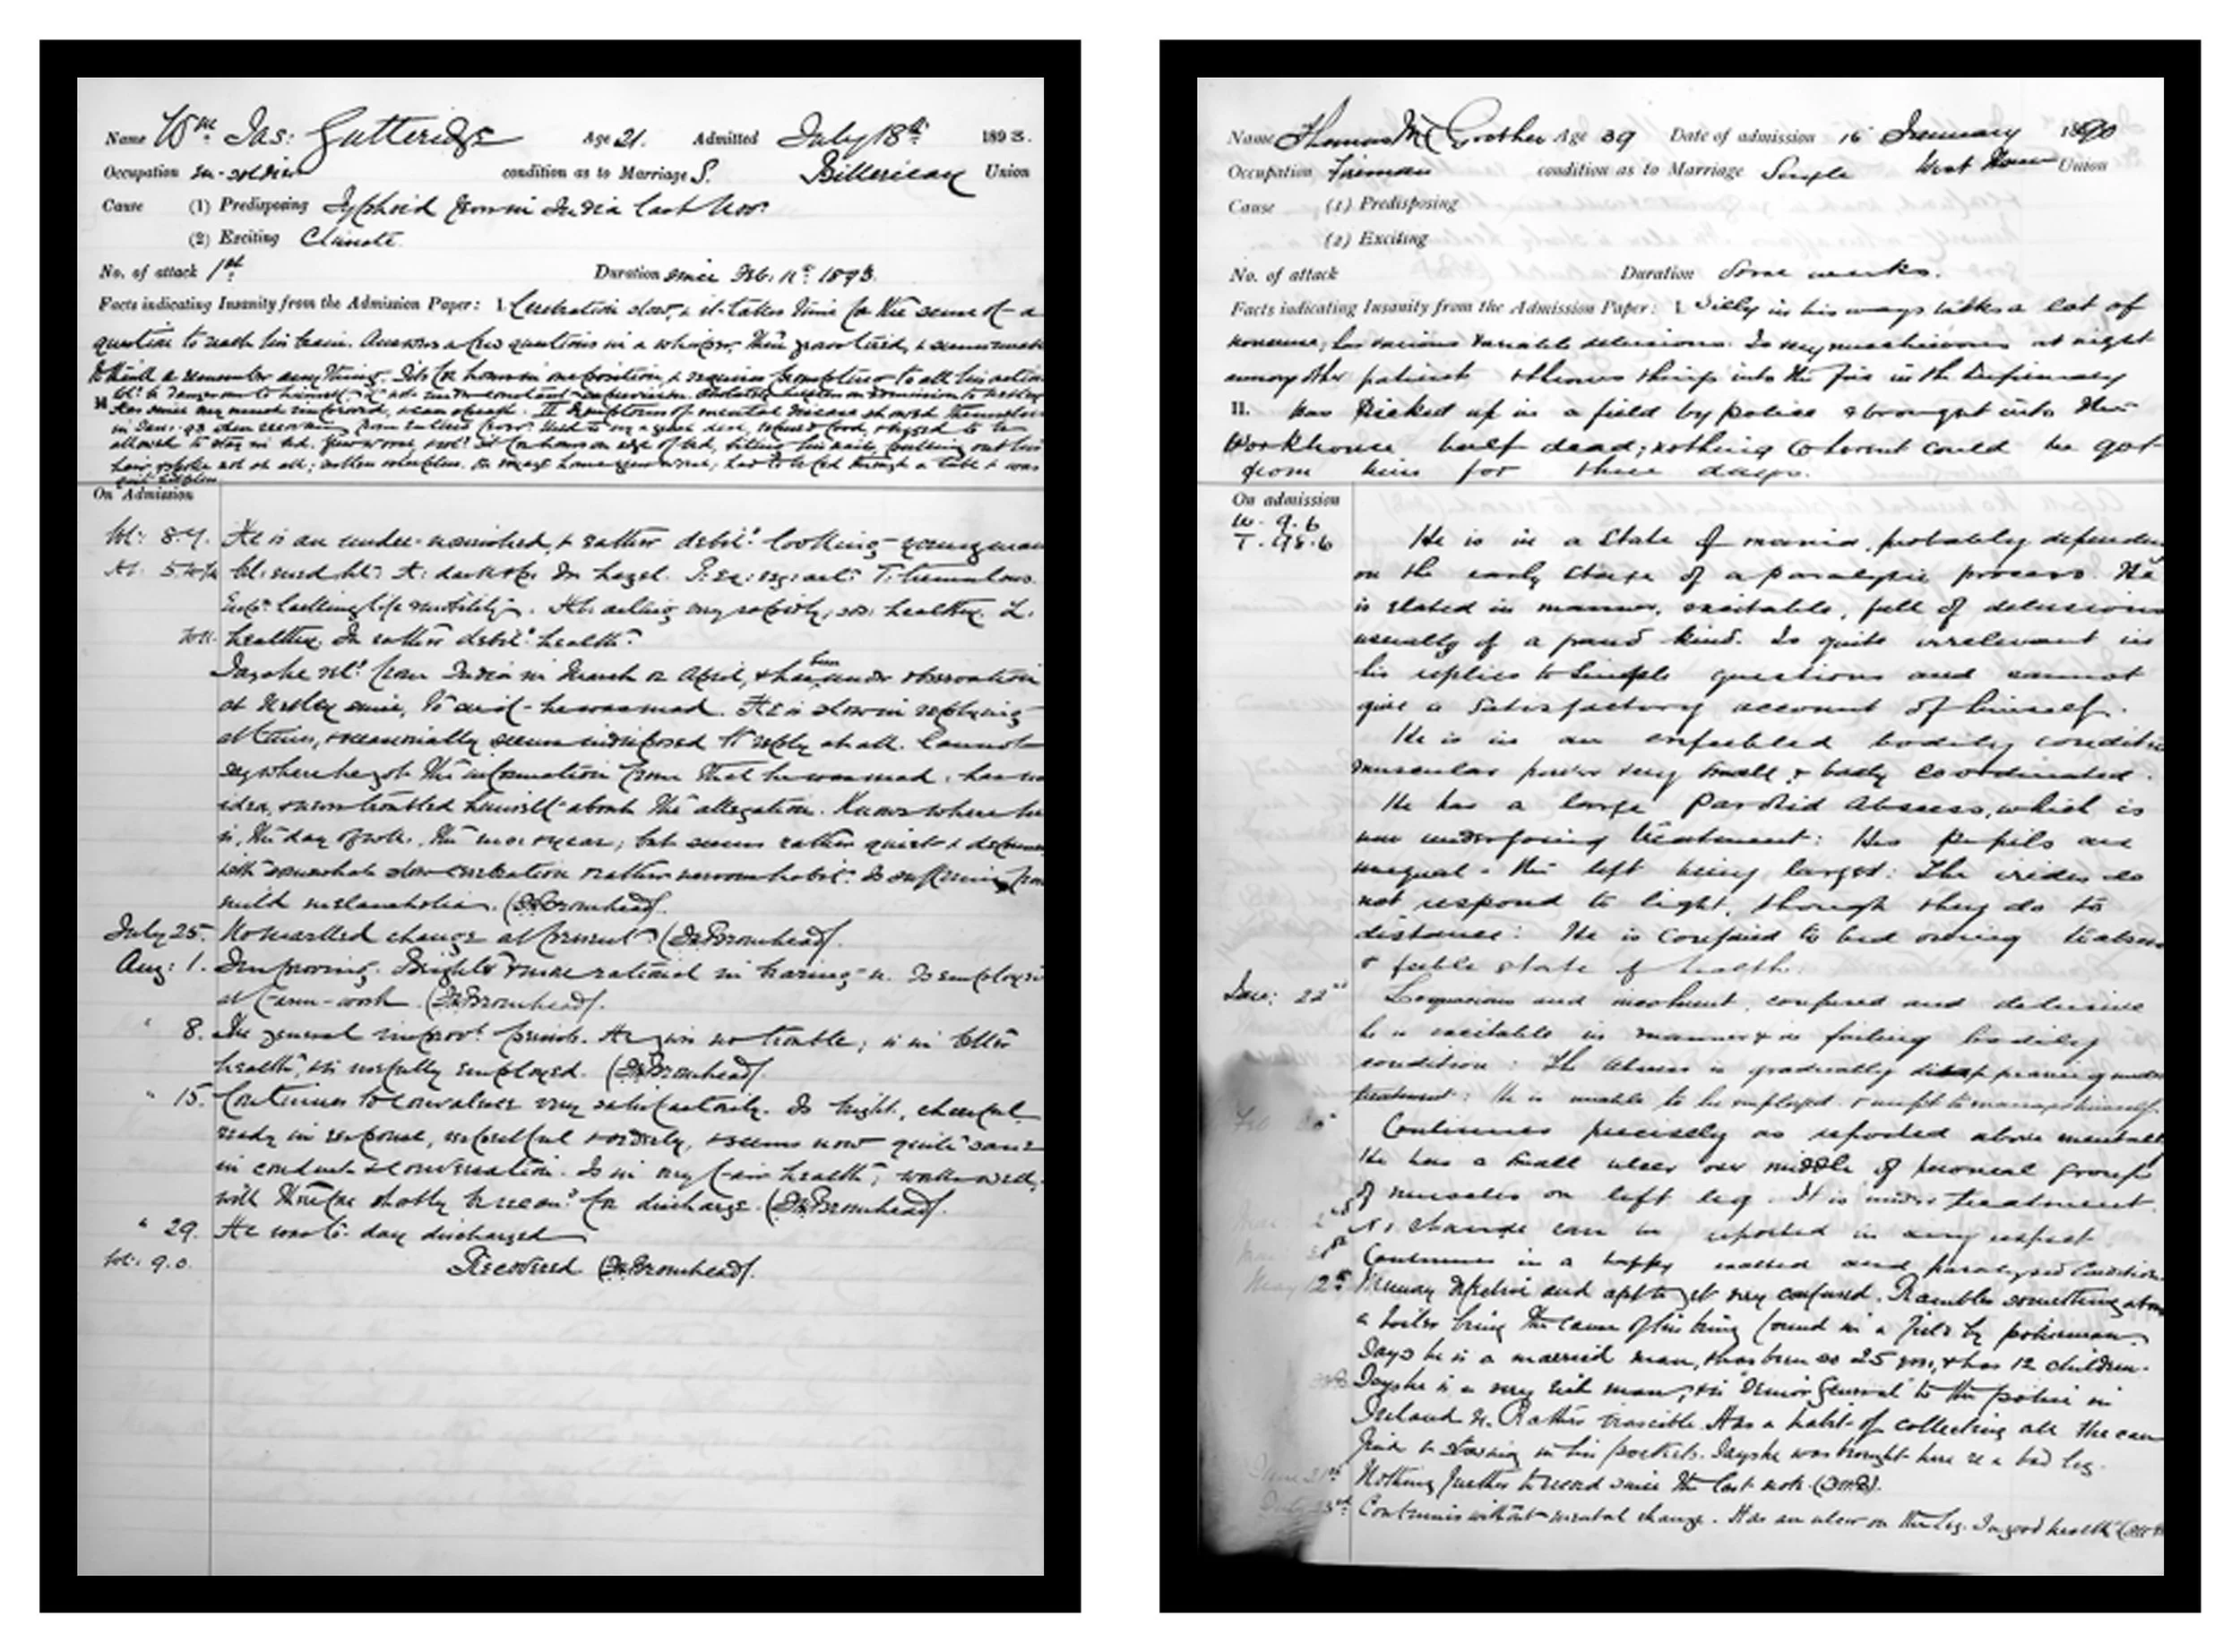 Name Wm. Jas: Gutteridge Age 21. Admitted July 18th 1893.
Occupation Ex-soldier condition as to Marriage S. Billericay Union
Cause (1) Predisposing Typhoid fever in India last Nov.
(2) Exciting Climate
No. of attack 1st Duration since Feb. 11th 1893.
Facts indicating Insanity from the Admission Paper: I. Cerebration slow, & it takes time for the sense of a
question to reach his brain. Answers a few questions in a whisper, then grows tired, & seems unable
to think or remember anything. Sits for hours in one position, & requires prompting to all his actions
allowed to stay in bed. Grew worse, wd. sit for hours on edge of bed, biting his nails, pulling out his
hair, & spoke not at all; sullen
On Admission
Wt: 8.7. He is an under-nourished, & rather debil. looking young man
healthy. In rather debil. health.
Says he retd. from India in March or April, & has been under observation
at Netley since, to as if he was mad. He is slow in replying
at times, & occasionally seems indisposed to reply at all. Cannot
say where he got the information from that he was mad. has no
idea, & never troubled himself about the allegation. Knows where he
is, the day of wk. the mo. & year; but seems rather quiet & depressed
with somewhat slow cerebration & rather nervous habit. Is suffering from
mild melancholia. (Dr. Bromhead).
July 25. No marked change at present. (Dr. Bromhead).
Aug: 1. Improving. Brighter & more rational in bearing &c. Is employed
at farm-work. (Dr. Bromhead).
" 8. The general improvt. persists. He gives no trouble; is in better
health, & is usefully employed. (Dr. Bromhead).
" 15. Continues to convalesce very satisfactorily. Is bright, cheerful,
ready in response, & orderly, & seems now quite sane
in conduct & conversation. Is in very fair health, works well,
will therefore shortly be recomd. for discharge. (Dr. Bromhead).
" 29. He was to-day discharged
Wt. 9.0. Recovered (Dr. Bromhead).
Name Thomas Mc Grother Age 39 Date of admission 16 January 1890
Occupation Fireman condition as to Marriage Single West Ham Union
Cause (1) Predisposing
(2) Exciting
No. of attack Duration Some weeks.
Facts indicating Insanity from the Admission Paper: I. Silly in his ways talks a lot of
nonsense, has various variable delusions. Is very mischievous at night
annoys other patients & throws things into the fire in the Infirmary
II. Was Picked up in a field by police & brought into the
Workhouse half dead; nothing Coherent could be got
from him for three days.
On admission
W. 9.6
T. 98.6 He is in a State of mania, probably dependent
on the early stage of a paralytic process. He
is elated in manner, excitable, full of delusions
usually of a grand kind. Is quite irrelevant in
his replies to simple questions and cannot
give a satisfactory account of himself.
He is in an enfeebled bodily condition
muscular power very small & badly coordinated.
He has a large Parotid Abscess, which is
now undergoing treatment: His pupils are
unequal - the left being largest: The irides do
not respond to light, though they do to
distance: He is confined to bed owing
& feeble state of health.
Jan: 22nd Loquacious and incoherent, confused and delusive
he is excitable in manner & in failing bodily
condition: The abscess is gradually disappearing under
treatment: He is unable to be employed. & unfit to manage himself.
Feb Continues precisely as reported above mentally
He has a small ulcer over middle of peroneal group
of muscles on left leg. It is under treatment.
No change can be reported in any respect.
Continues in a happy exalted and paralysed Condition.
May 12th Memory defective and apt to get very confused. Rambles something about
a boiler being the cause of his being found in a field by policeman
Says he is a married man, & has been so 25 yrs, & has 12 children.
Says he is a very rich man; & is "Senior General" to the police in
Ireland &c. Rather irascible. Has a habit of collecting all he can
find & stowing in his pockets. Says he was brought here re a bad leg.
June 21st Nothing further to record since the last note.
July 23rd Continues without mental change. Has an ulcer on the leg. In good health